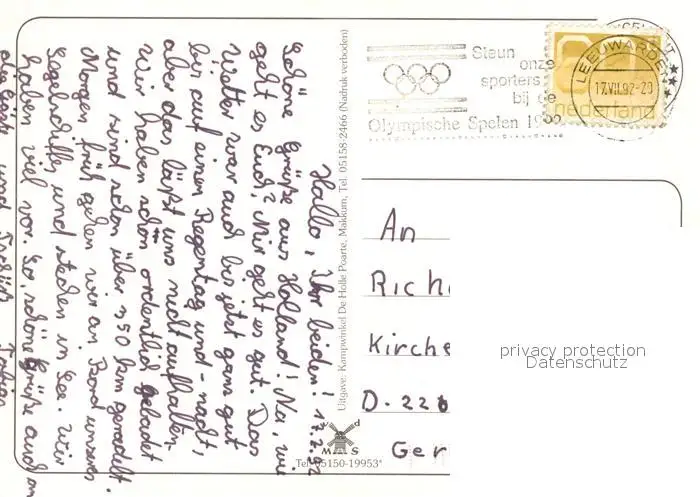 Hallo, Ihr beiden! 17.7.92
Schöne Grüße aus Holland! Na, wie
geht es Euch? Mir geht es gut. Das
Wetter war auch bis jetzt ganz gut
bis auf einen Regentag und -nacht,
aber das läßt uns nicht aufhalten.
Wir haben schon ordentlich gebadet
und sind schon über 350 km geradelt.
Morgen früh gehen wir an Bord unseres
Segelschiffes und stechen in See. Wir
haben viel vor. So, schöne Grüße auch an
und Tschüß
Uitgave: Kampwinkel De Holle Poarte, Makkum, Tel. 05158-2466 (Nadruk verboden)
Steun
onze
sporters
bij de
Olympische Spelen
LEEUWARDEN
17.VII.92-20
nederland
An
Rich
Kirche
D-226
Ger
Tel. 05150-19953*
privacy protection
Datenschutz